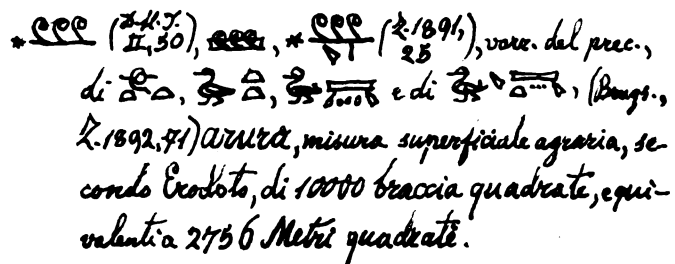 * (D.H.I. II, 50), , * (Z. 1891, 25), varr. del prec.,
di , , e di , (Brugs.,
Z. 1892, 71) arura, misura superficiale agraria, se-
condo Erodoto, di 10000 braccia quadrate, equi-
valenti a 2756 Metri quadrati.